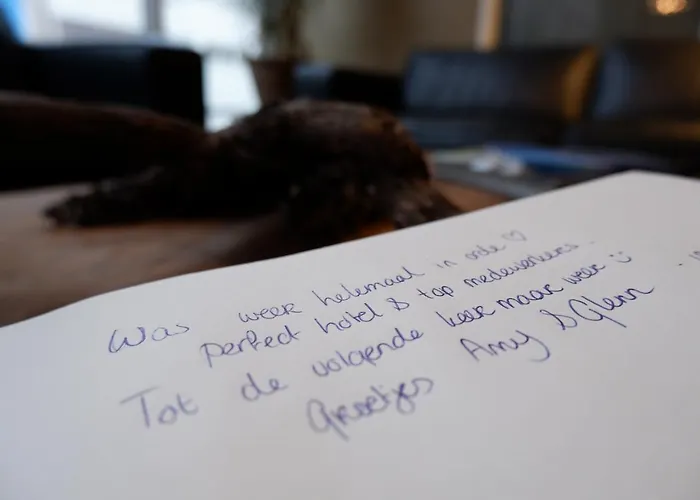 Was weer helemaal in orde ♡
perfect hotel & top medewerkers.
Tot de volgende keer maar weer :)
Groetjes Amy & Glenn